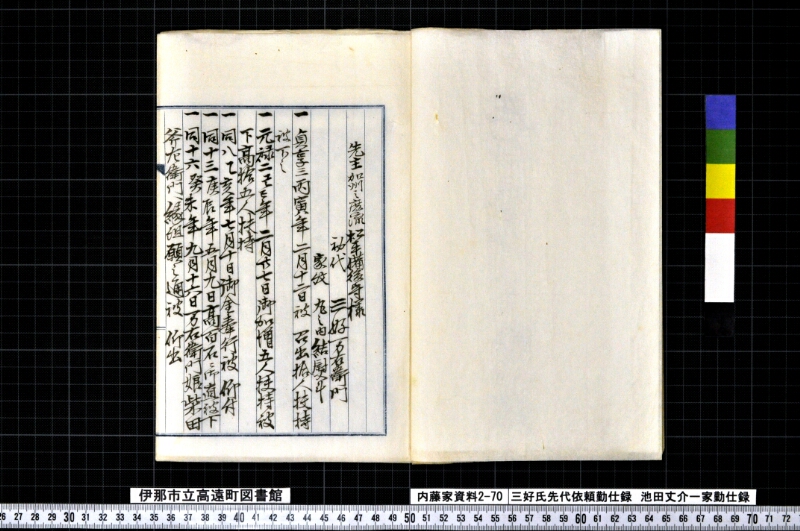 先主 加州之庶流 松平備後守様
初代 三好万右衛門
家紋 丸之内結熨斗
一 貞享三丙寅年 二月十二日被 召出拾人扶持
被下之
一 元禄二己巳年 二月廿七日御加増五人扶持被
下高拾五人扶持
一 同八乙亥年七月十日御金奉行被 仰付
一 同十三庚辰年五月九日高百石ニ御直被下
一 同十六癸未年九月十六日万右衛門娘柴田
斧左衛門へ縁組願之通被 仰出
伊那市立高遠町図書館
内藤家資料2-70 三好氏先代依頼勤仕録 池田丈介一家勤仕録